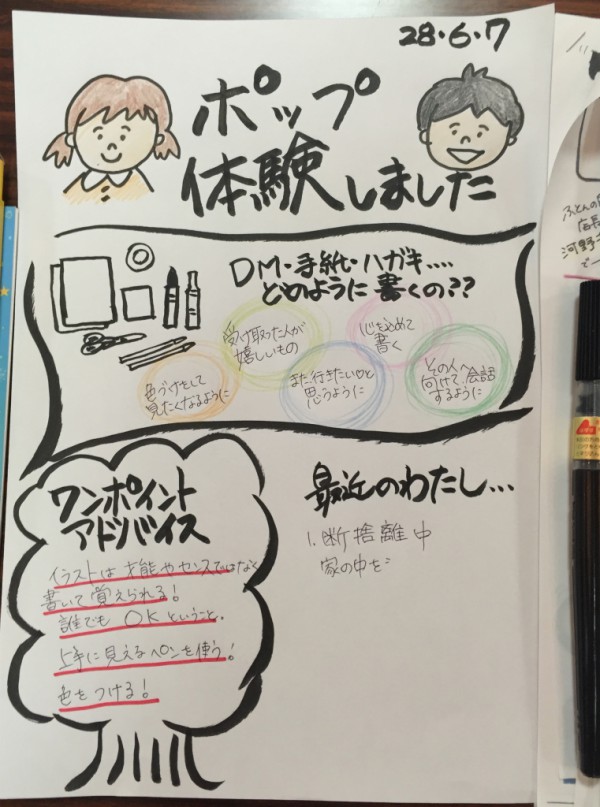 28・6・7
ポップ
体験しました
DM・手紙・ハガキ....
どのように書くの??
受け取った人が
嬉しいもの
心を込めて
書く
色づけをして
見たくなるように
また行きたい♡と
思うように
その人へ
向けて、会話
するように
ワンポイント
アドバイス
イラストは才能やセンスではなく
書いて覚えられる!
誰でもOKということ。
上手に見えるペンを使う!
色をつける!
最近のわたし...
1. 断捨離中
家の中を
ふとんの
店長
河野
で